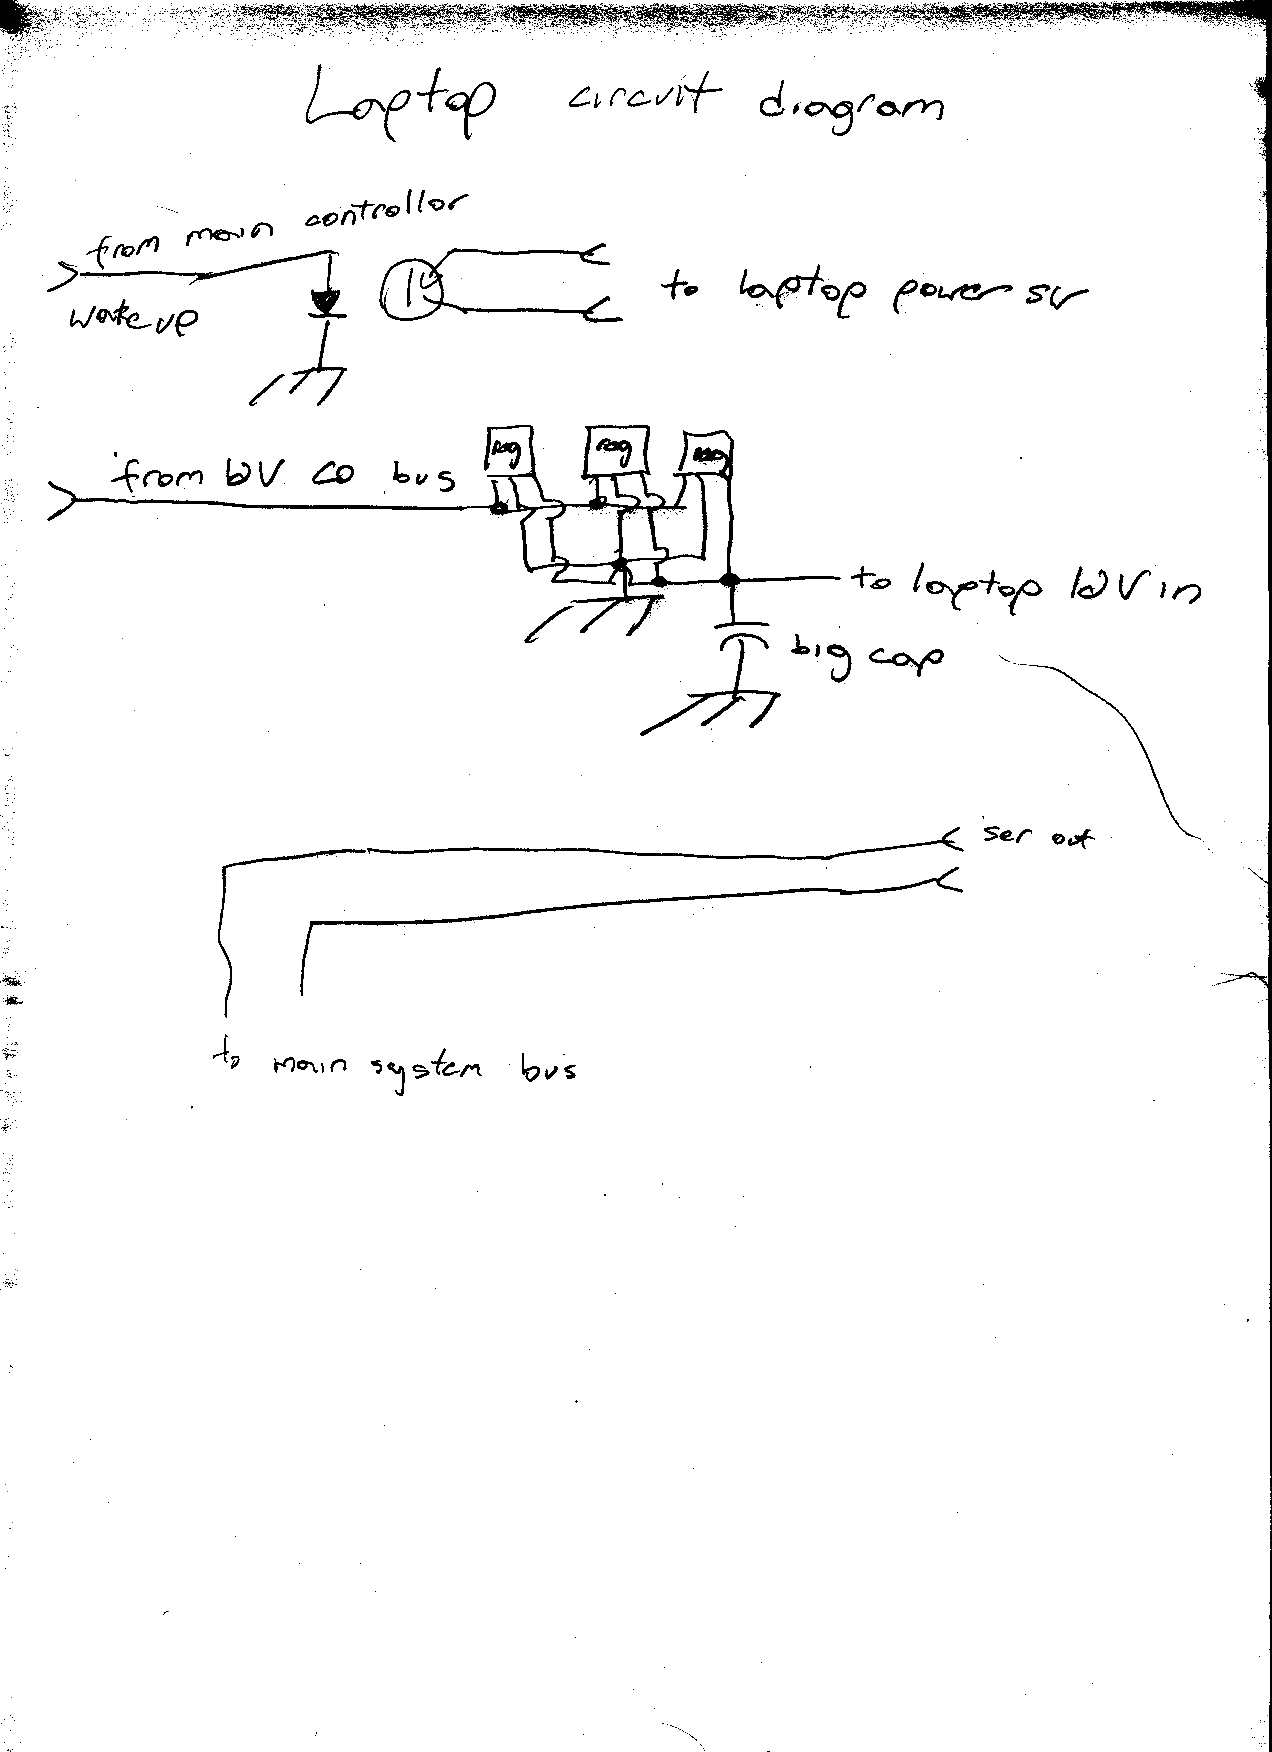 Laptop circuit diagram
from main controllor
wake up
to laptop power sw
reg reg reg
from 12V CO bus
to laptop 12V in
big cap
ser out
to main system bus